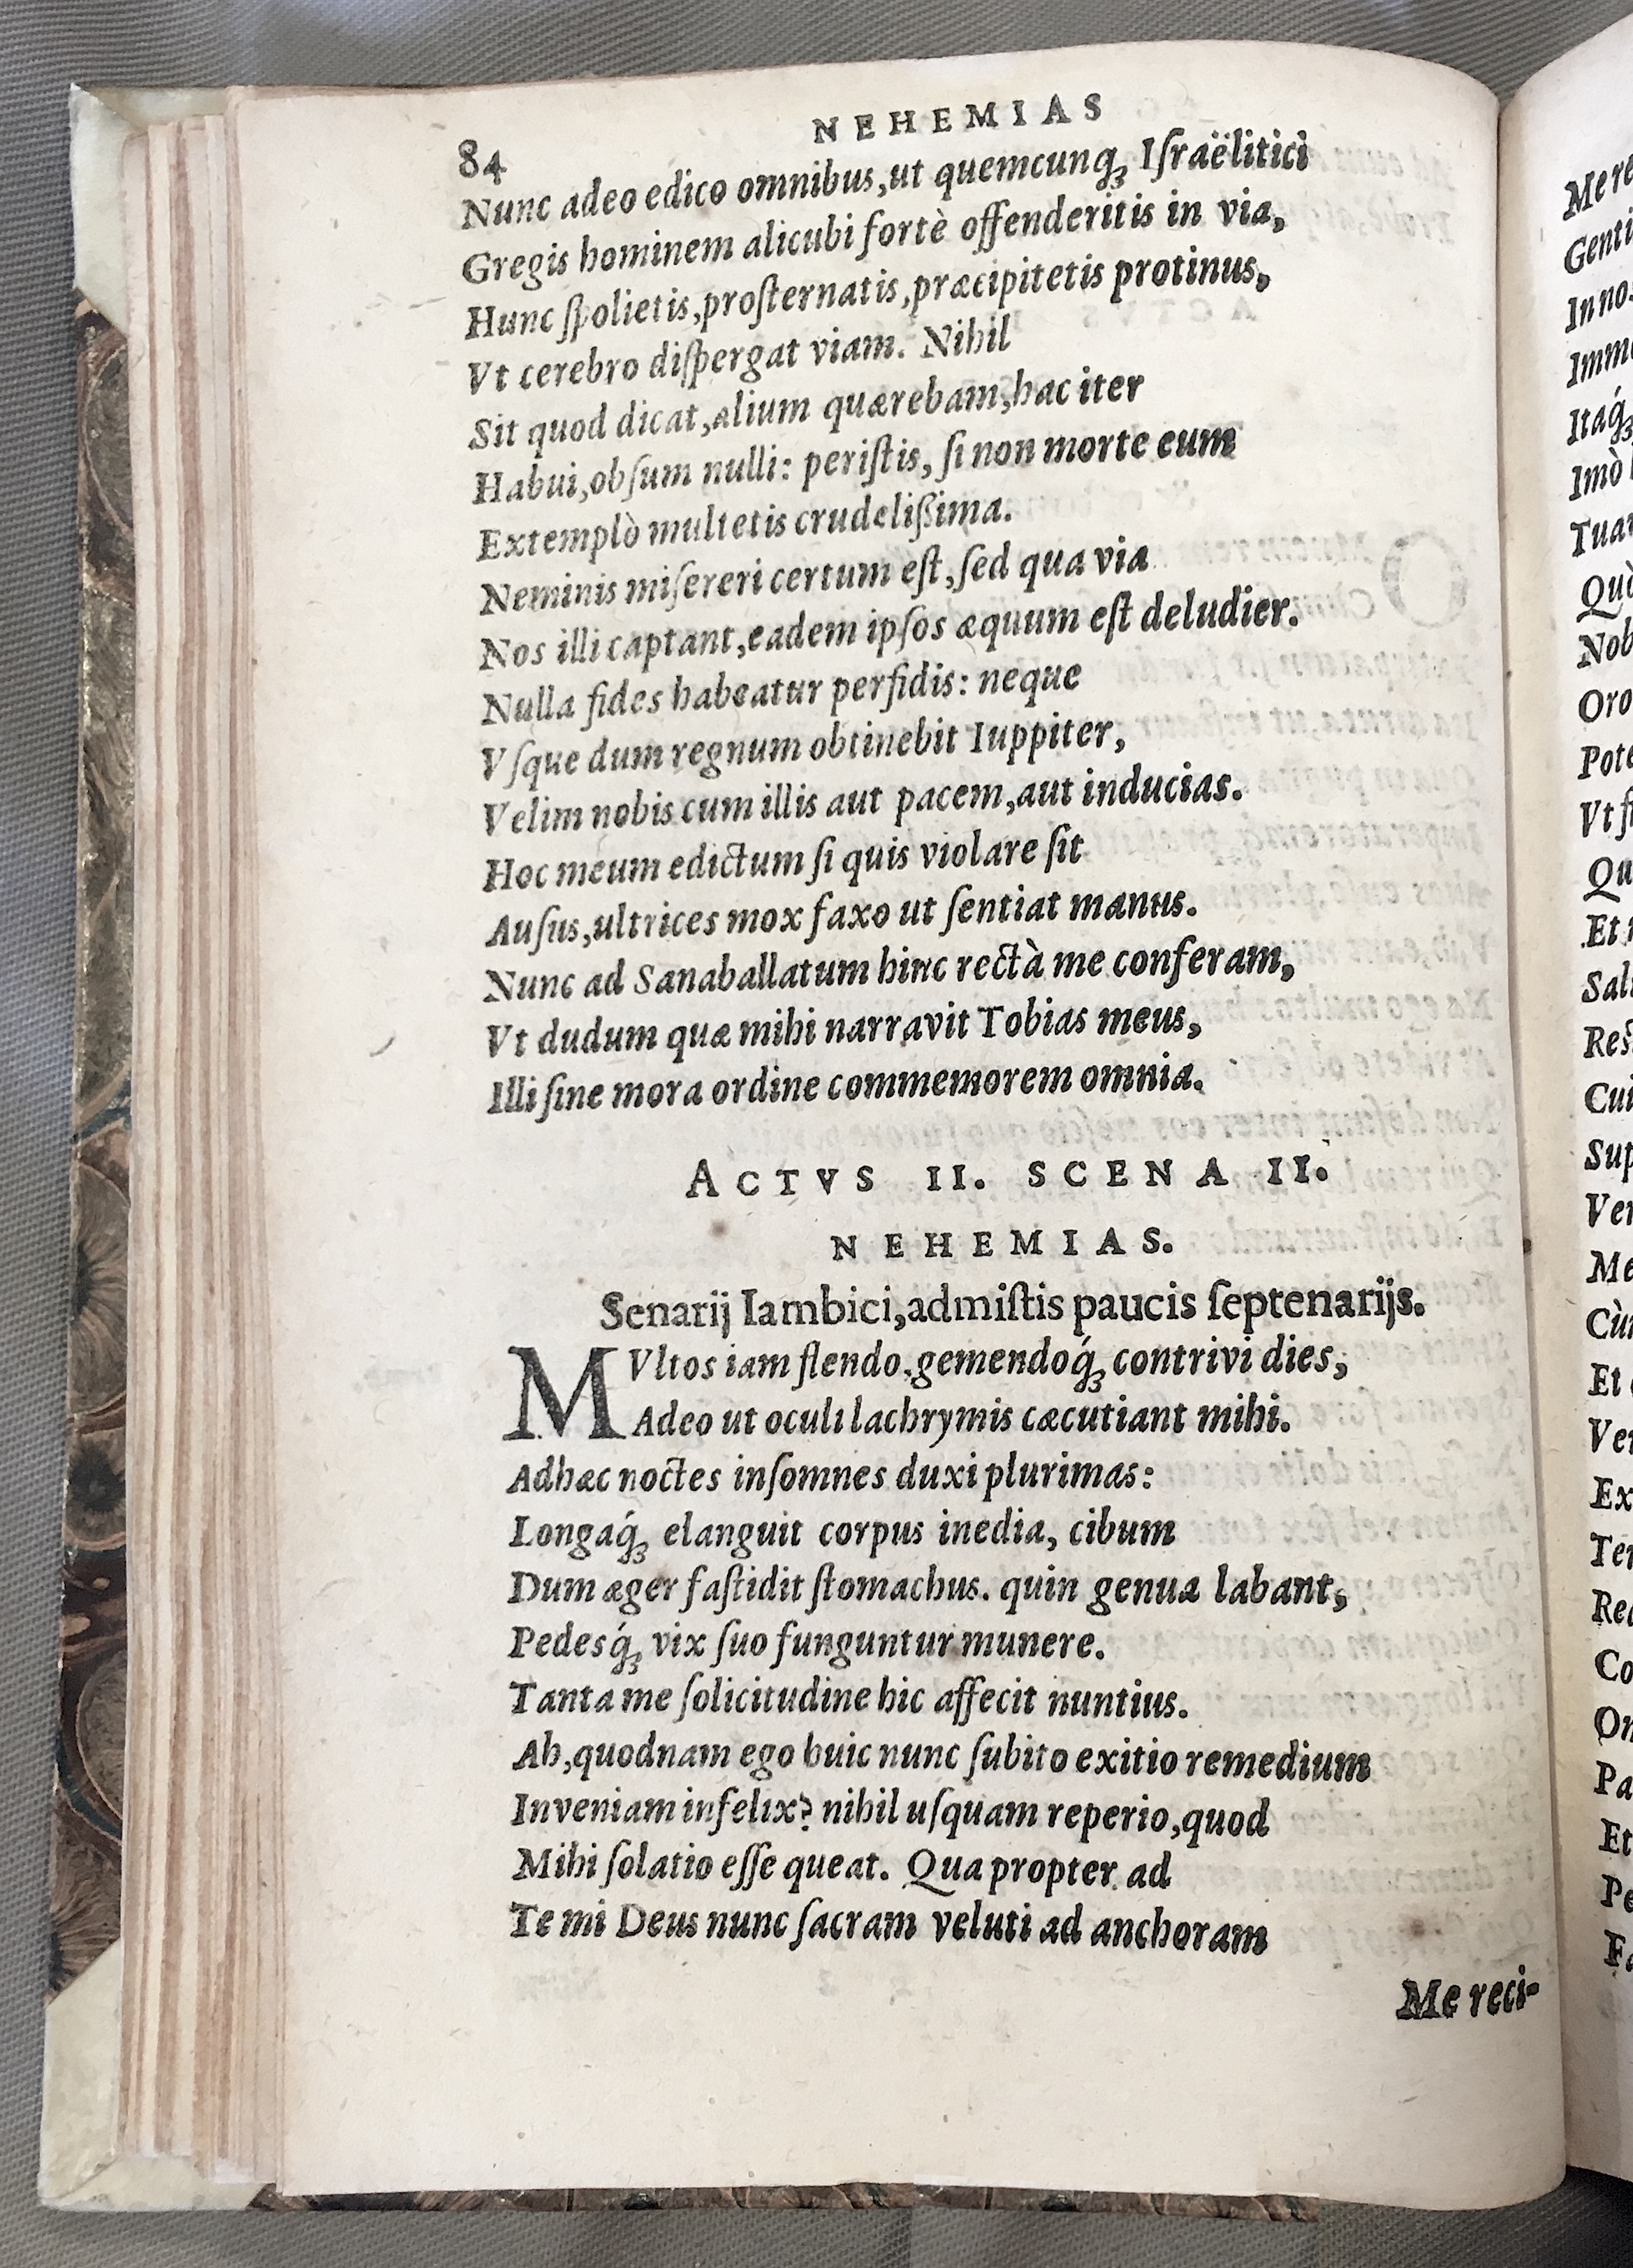 NEHEMIAS
84
Nunc adeo edico omnibus, ut quemcunq́ꝫ Iſraëlitici
Gregis hominem alicubi fortè offenderitis in via,
Hunc ſpolietis, proſternatis, præcipitetis protinus,
Vt cerebro diſpergat viam. Nihil
Sit quod dicat, alium quærebam, hac iter
Habui, obſum nulli: periſtis, ſi non morte eum
Extemplò multetis crudelißima.
Neminis miſereri certum eſt, ſed qua via
Nos illi captant, eadem ipſos æquum eſt deludier.
Nulla fides habeatur perfidis: neque
Vſque dum regnum obtinebit Iuppiter,
Velim nobis cum illis aut pacem, aut inducias.
Hoc meum edictum ſi quis violare ſit
Auſus, ultrices mox faxo ut ſentiat manus.
Nunc ad Sanaballatum hinc rectà me conferam,
Vt dudum quæ mihi narravit Tobias meus,
Illi ſine mora ordine commemorem omnia.
ACTVS II. SCENA II.
NEHEMIAS.
Senarij Iambici, admiſtis paucis ſeptenarijs.
MVltos iam flendo, gemendoq́ꝫ contrivi dies,
Adeo ut oculi lachrymis cæcutiant mihi.
Adhæc noctes inſomnes duxi plurimas:
Longaq́ꝫ elanguit corpus inedia, cibum
Dum æger faſtidit ſtomachus. quin genua labant,
Pedesq́ꝫ vix ſuo funguntur munere.
Tanta me ſolicitudine hic affecit nuntius.
Ah, quodnam ego huic nunc ſubito exitio remedium
Inveniam infelix? nihil uſquam reperio, quod
Mihi ſolatio eſſe queat. Qua propter ad
Te mi Deus nunc ſacram veluti ad anchoram
Me reci-